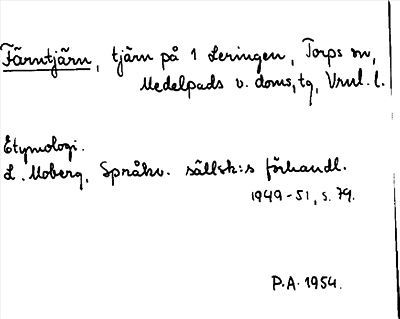 Färntjärn, tjärn på 1 Leringen, Torps sn,
Medelpads v. doms.tg, Vrnl. l.
Etymologi.
L. Moberg, Språkv. sällsk:s förhandl.
1949-51, s. 79.
P.A. 1954.